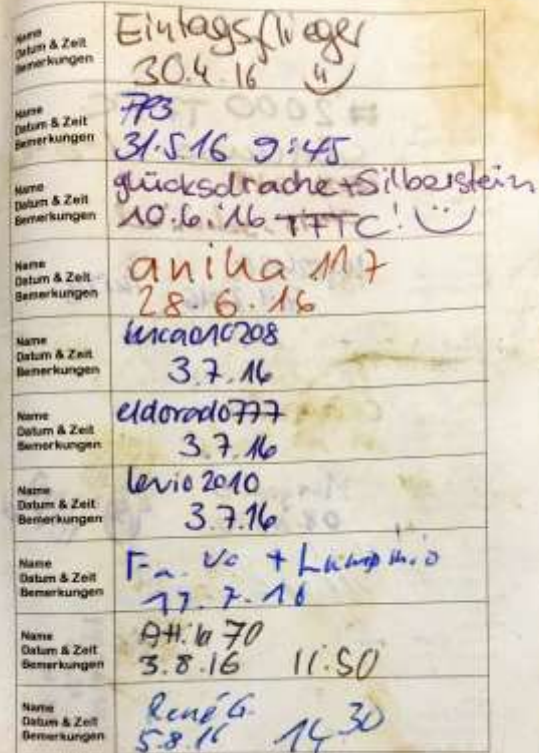 Name
Datum & Zeit
Bemerkungen
Eintagsflieger
30.4.16
Name
Datum & Zeit
Bemerkungen
31.5.16 9:45
Name
Datum & Zeit
Bemerkungen
glücksdrache+Silberstein
10.6.16 TFTC!
Name
Datum & Zeit
Bemerkungen
anika 117
28.6.16
Name
Datum & Zeit
Bemerkungen
3.7.16
Name
Datum & Zeit
Bemerkungen
eldorado777
3.7.16
Name
Datum & Zeit
Bemerkungen
levio2010
3.7.16
Name
Datum & Zeit
Bemerkungen
17.7.16
Name
Datum & Zeit
Bemerkungen
Attila 70
3.8.16 11:50
Name
Datum & Zeit
Bemerkungen
René G.
5.8.16 14 30